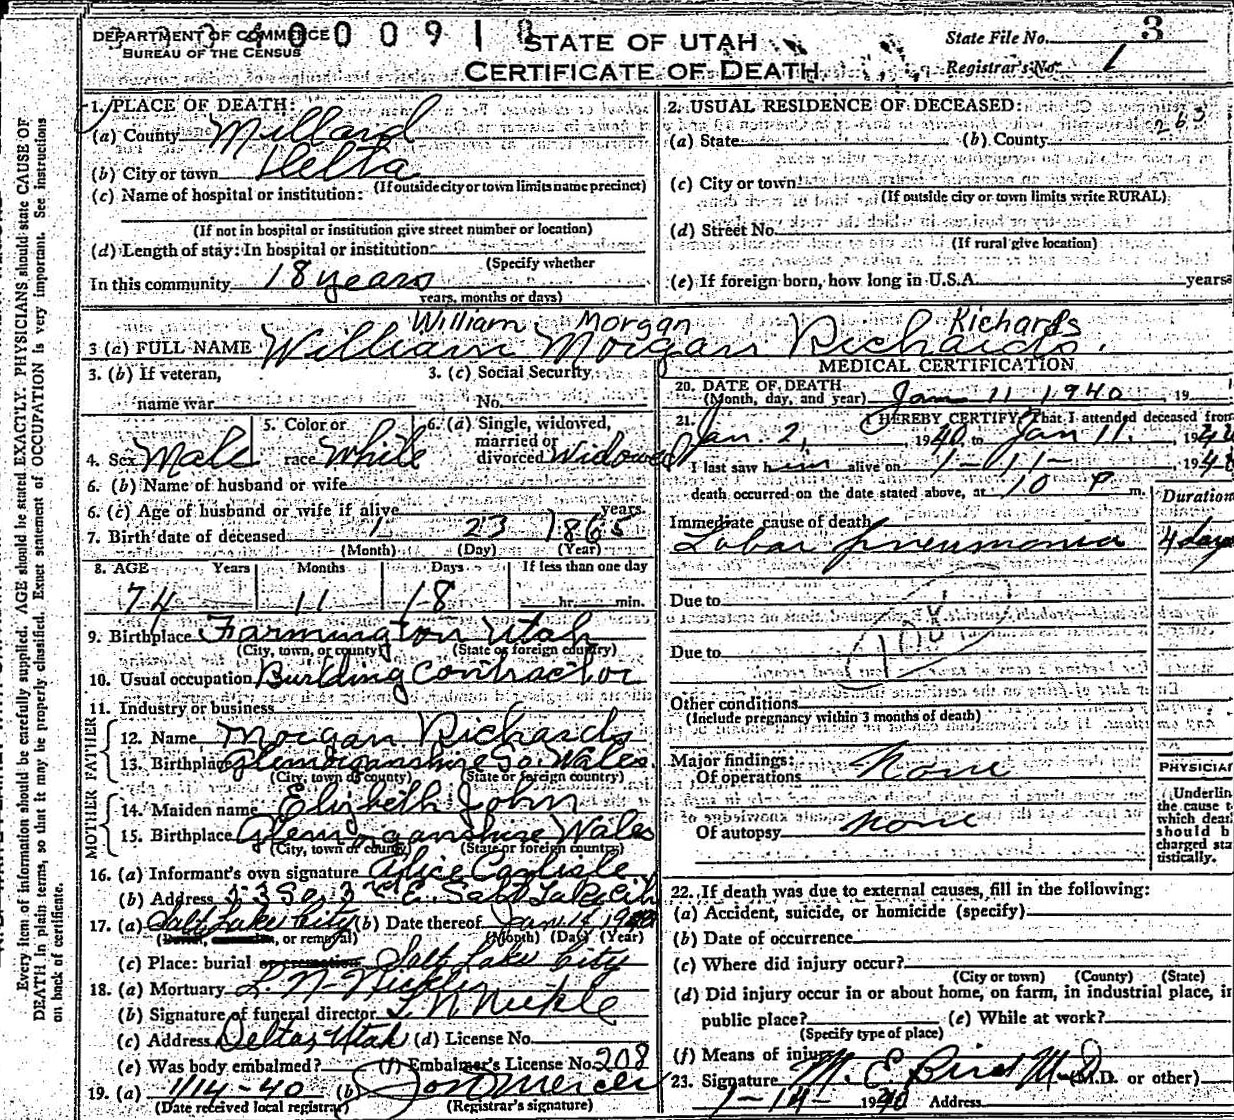 DEPARTMENT OF COMMERCE
BUREAU OF THE CENSUS
4 0 0 0 9 1 8
STATE OF UTAH
CERTIFICATE OF DEATH
State File No. 3
Registrar's No. 1
1. PLACE OF DEATH:
(a) County Millard
(b) City or town Delta
(If outside city or town limits name precinct)
(c) Name of hospital or institution:
(If not in hospital or institution give street number or location)
(d) Length of stay: In hospital or institution
(Specify whether
In this community 18 years
years, months or days)
2. USUAL RESIDENCE OF DECEASED:
263
(a) State (b) County
(c) City or town
(If outside city or town limits write RURAL)
(d) Street No.
(If rural give location)
(e) If foreign born, how long in U.S.A. years
William Morgan Richards
3 (a) FULL NAME William Morgan Richards.
3. (b) If veteran,
name war
3. (c) Social Security
No.
4. Sex Male
5. Color or
race White
6. (a) Single, widowed,
married or
divorced Widowed
6. (b) Name of husband or wife
6. (c) Age of husband or wife if alive years.
7. Birth date of deceased 1 23 1865
(Month) (Day) (Year)
8. AGE Years Months Days If less than one day
74 11 18 hr. min.
9. Birthplace Farmington Utah
(City, town, or county) (State or foreign country)
10. Usual occupation Building Contractor
11. Industry or business
FATHER
12. Name Morgan Richards
13. Birthplace So. Wales.
(City, town or county) (State or foreign country)
MOTHER
14. Maiden name Elizbeth John
15. Birthplace Wales
(City, town or county) (State or foreign country)
16. (a) Informant's own signature Alice Carlisle
(b) Address So. 3 E. Salt Lake City
17. (a) Salt Lake City (b) Date thereof Jan. 1940
(Burial, or removal) (Month) (Day) (Year)
(c) Place: burial or cremation Salt Lake City
18. (a) Mortuary L. N. Nickle
(b) Signature of funeral director L N Nickle
(c) Address Delta, Utah (d) License No.
(e) Was body embalmed? (f) Embalmer's License No. 208
19. (a) 1/14-40 (b)
(Date received local registrar) (Registrar's signature)
MEDICAL CERTIFICATION
20. DATE OF DEATH
(Month, day, and year) Jan 11 1940, 19
21. I HEREBY CERTIFY, That I attended deceased from
Jan. 2, 1940, to Jan 11., 1940
I last saw him alive on 1-11-, 1940
death occurred on the date stated above, at 10 P m.
Duration
Immediate cause of death
Lobar pneumonia 4 days
Due to
108
Due to
Other conditions
(Include pregnancy within 3 months of death)
Major findings:
Of operations None
Of autopsy None
PHYSICIAN
Underlin
the cause t
which deat
should b
charged sta
tistically.
22. If death was due to external causes, fill in the following:
(a) Accident, suicide, or homicide (specify)
(b) Date of occurrence
(c) Where did injury occur?
(City or town) (County) (State)
(d) Did injury occur in or about home, on farm, in industrial place, in
public place? (e) While at work?
(Specify type of place)
(f) Means of injury
23. Signature M. E. Bird M.D. (M.D. or other)
1-14- 1940 Address
Every item of information should be carefully supplied. AGE should be stated EXACTLY. PHYSICIANS should state CAUSE OF
DEATH in plain terms, so that it may be properly classified. Exact statement of OCCUPATION is very important. See instructions
on back of certificate.